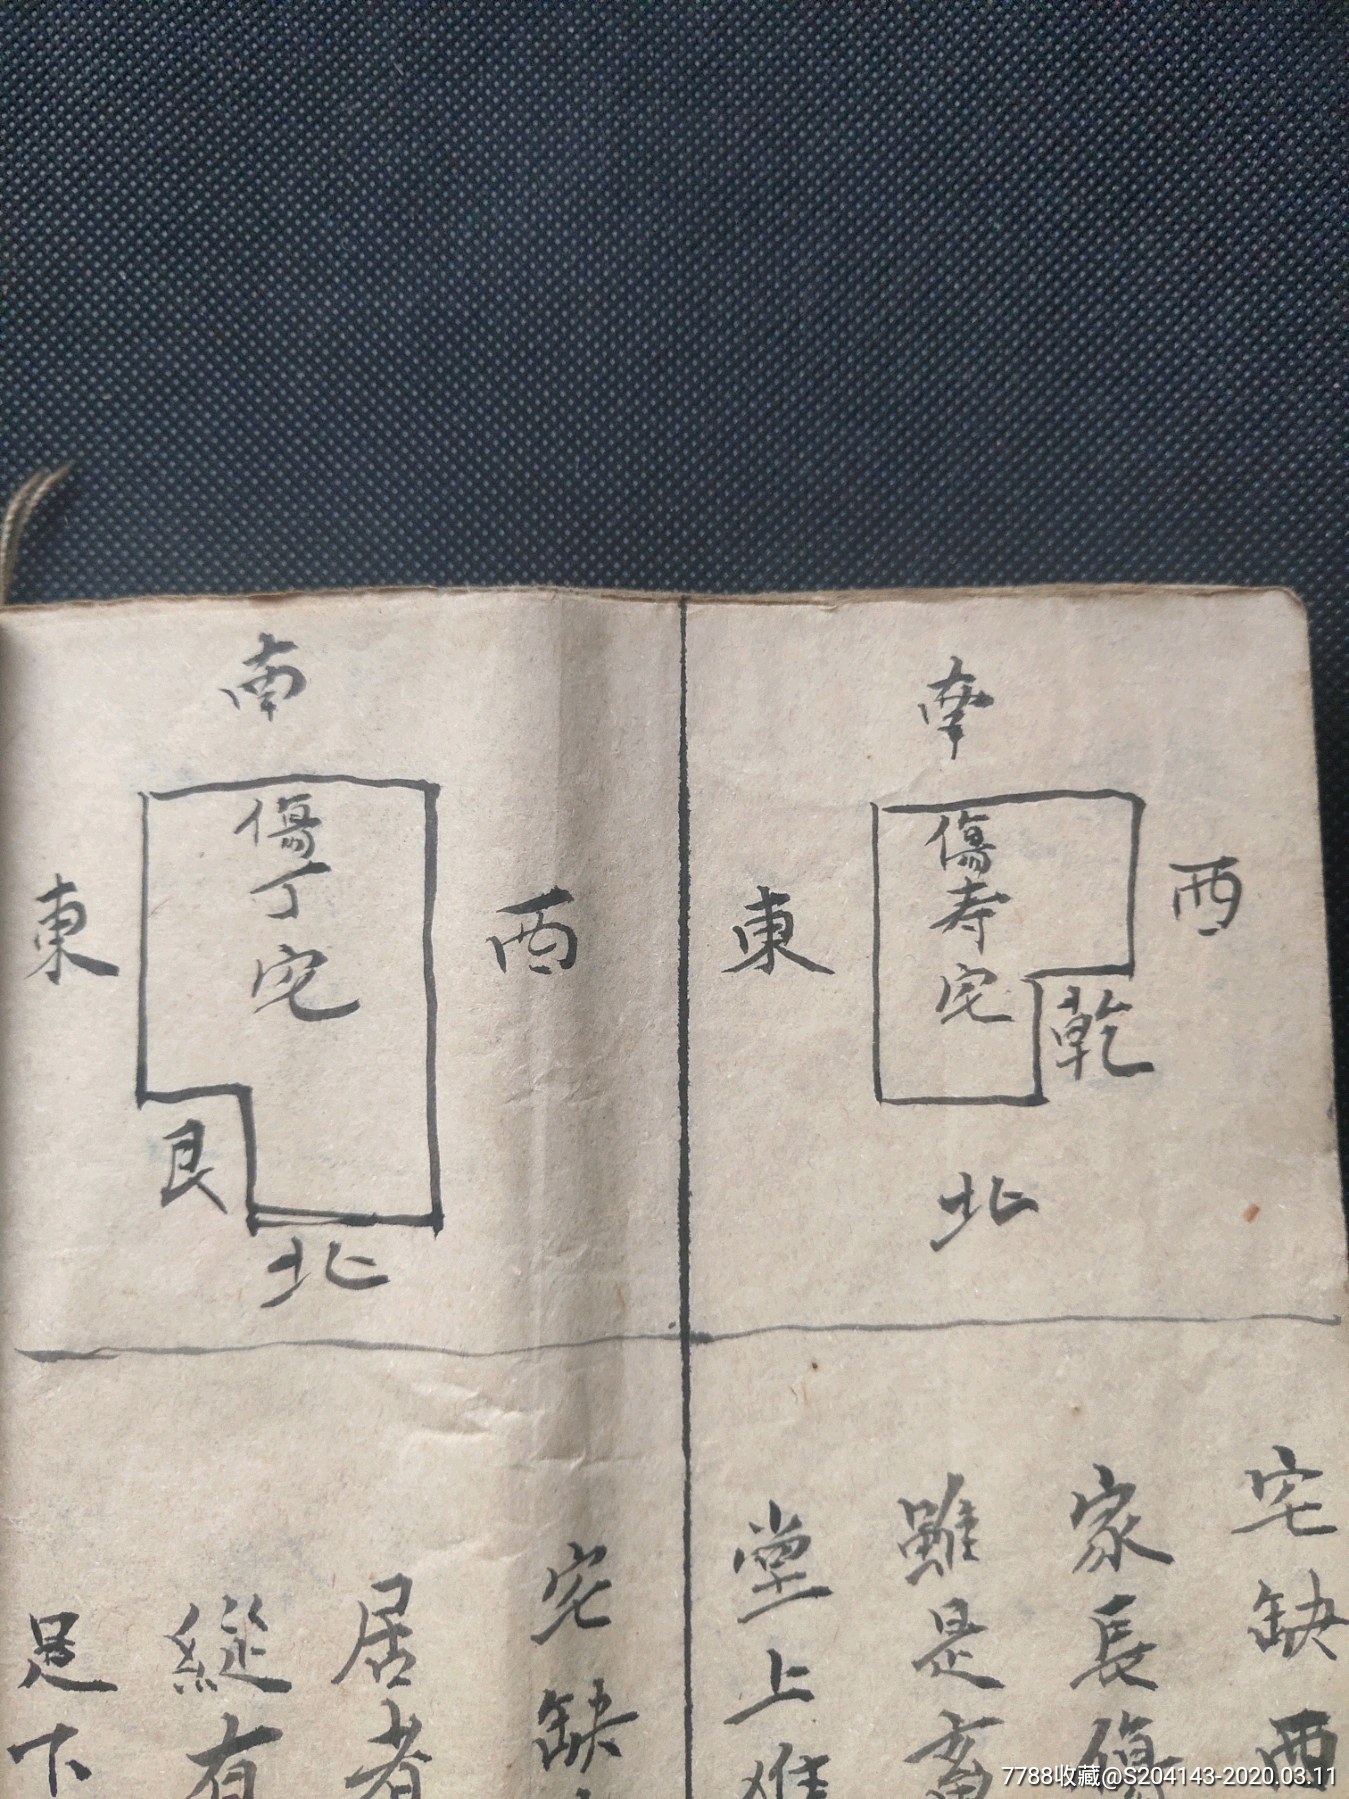 南
西
傷寿宅
東
乾
北
宅缺西
家長傷
雖是畜
堂上难
南
西
傷丁宅
東
艮
北
宅缺
居者
縱有
足下
7788收藏@S204143-2020.03.11